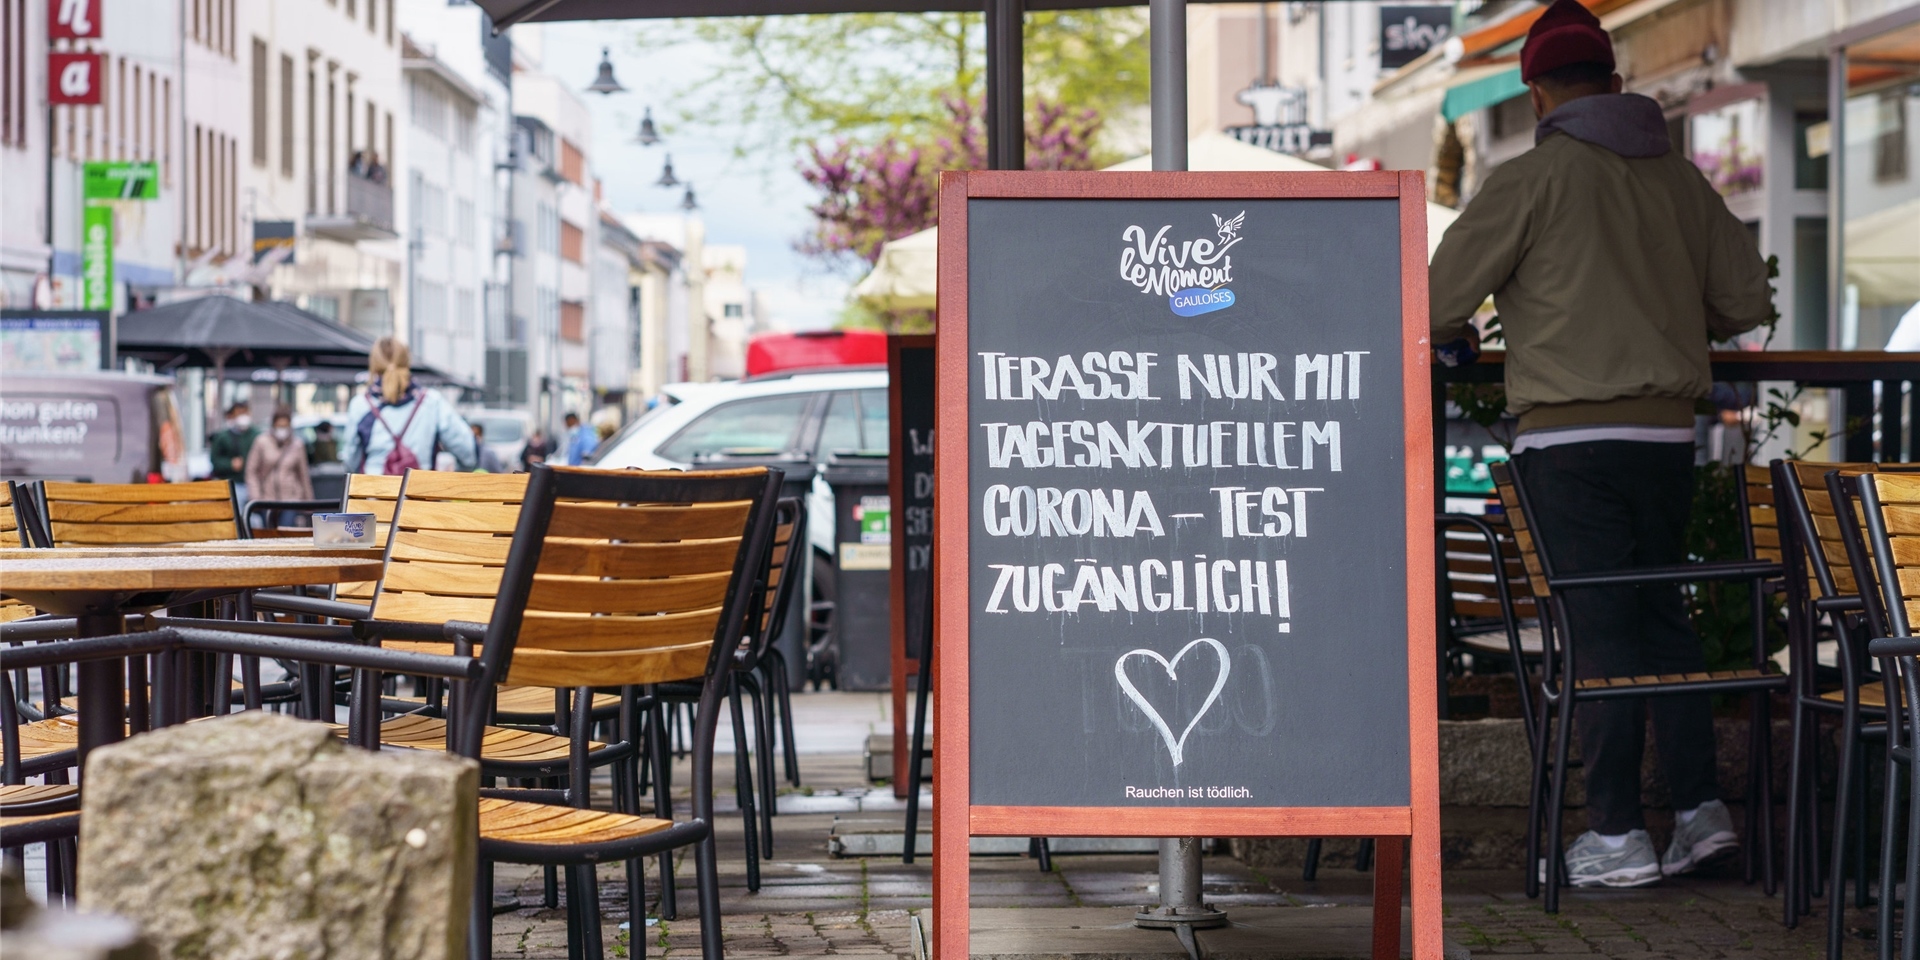 n
a
mobile
sky
hon guten
trunken?
Vive
le Moment
GAULOISES
TERASSE NUR MIT
TAGESAKTUELLEM
CORONA – TEST
ZUGÄNGLICH!
Rauchen ist tödlich.